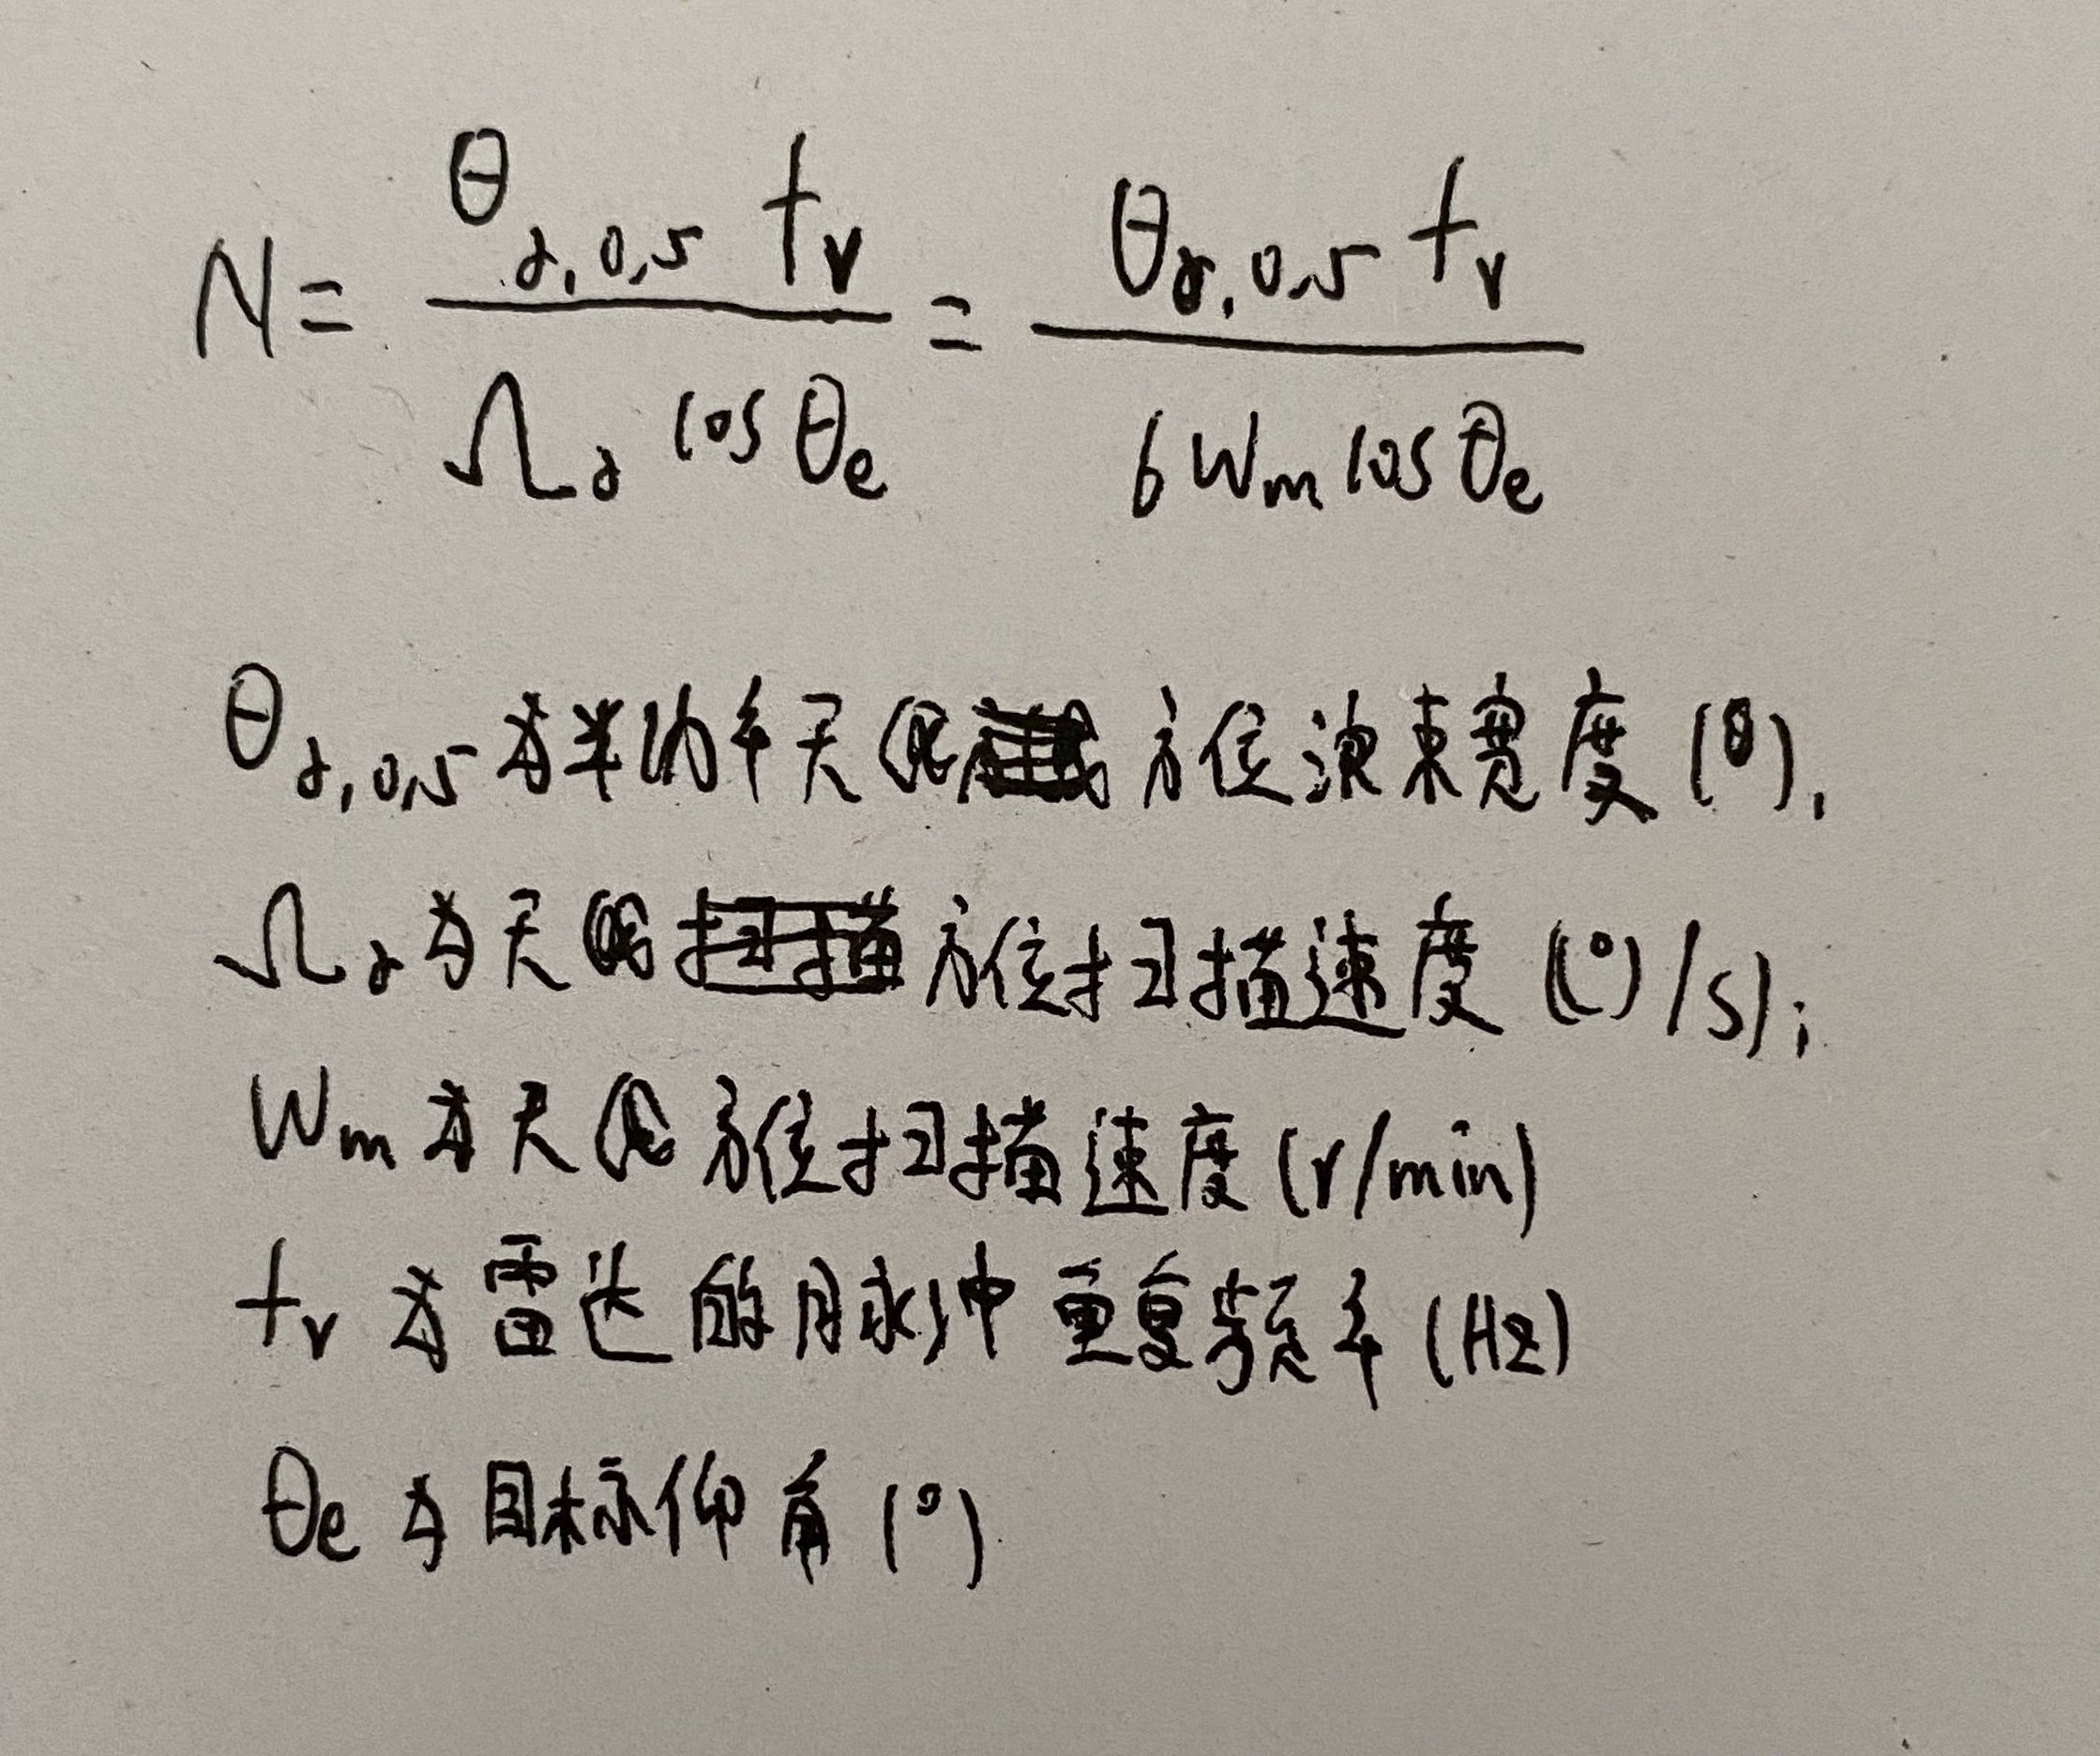 N = θα,0.5 fr / Ωα cosθe = θα,0.5 fr / 6ωm cosθe
θα,0.5为半功率天线方位波束宽度(°),
Ωα为天线方位扫描速度((°)/s);
ωm为天线方位扫描速度(r/min)
fr为雷达的脉冲重复频率(Hz)
θe为目标仰角(°)